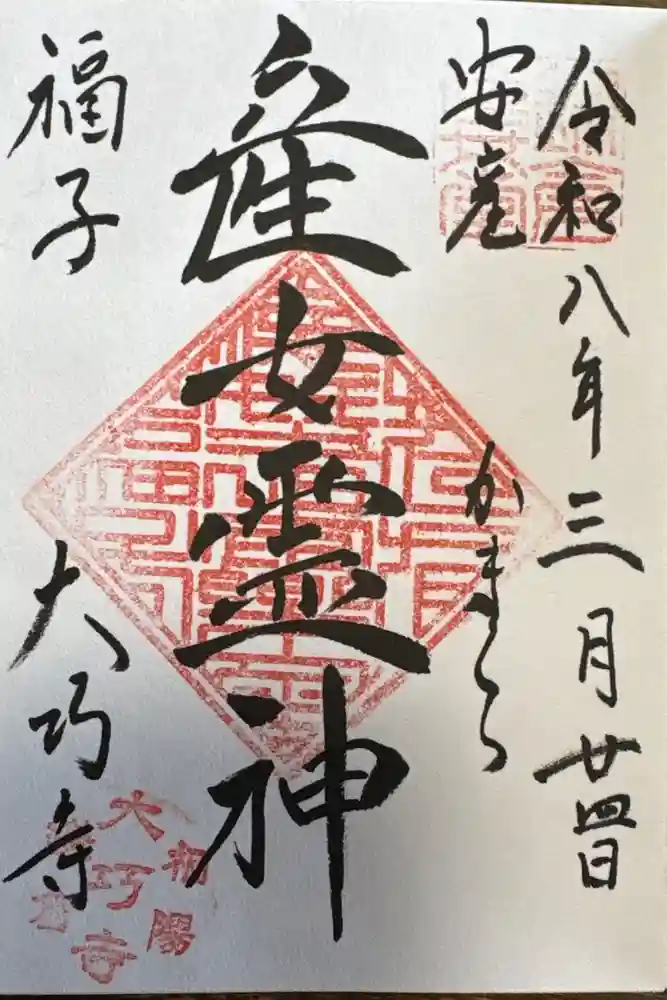 令和八年三月廿四日
安産
かまくら
産女霊神
福子
大巧寺
相陽
大巧寺